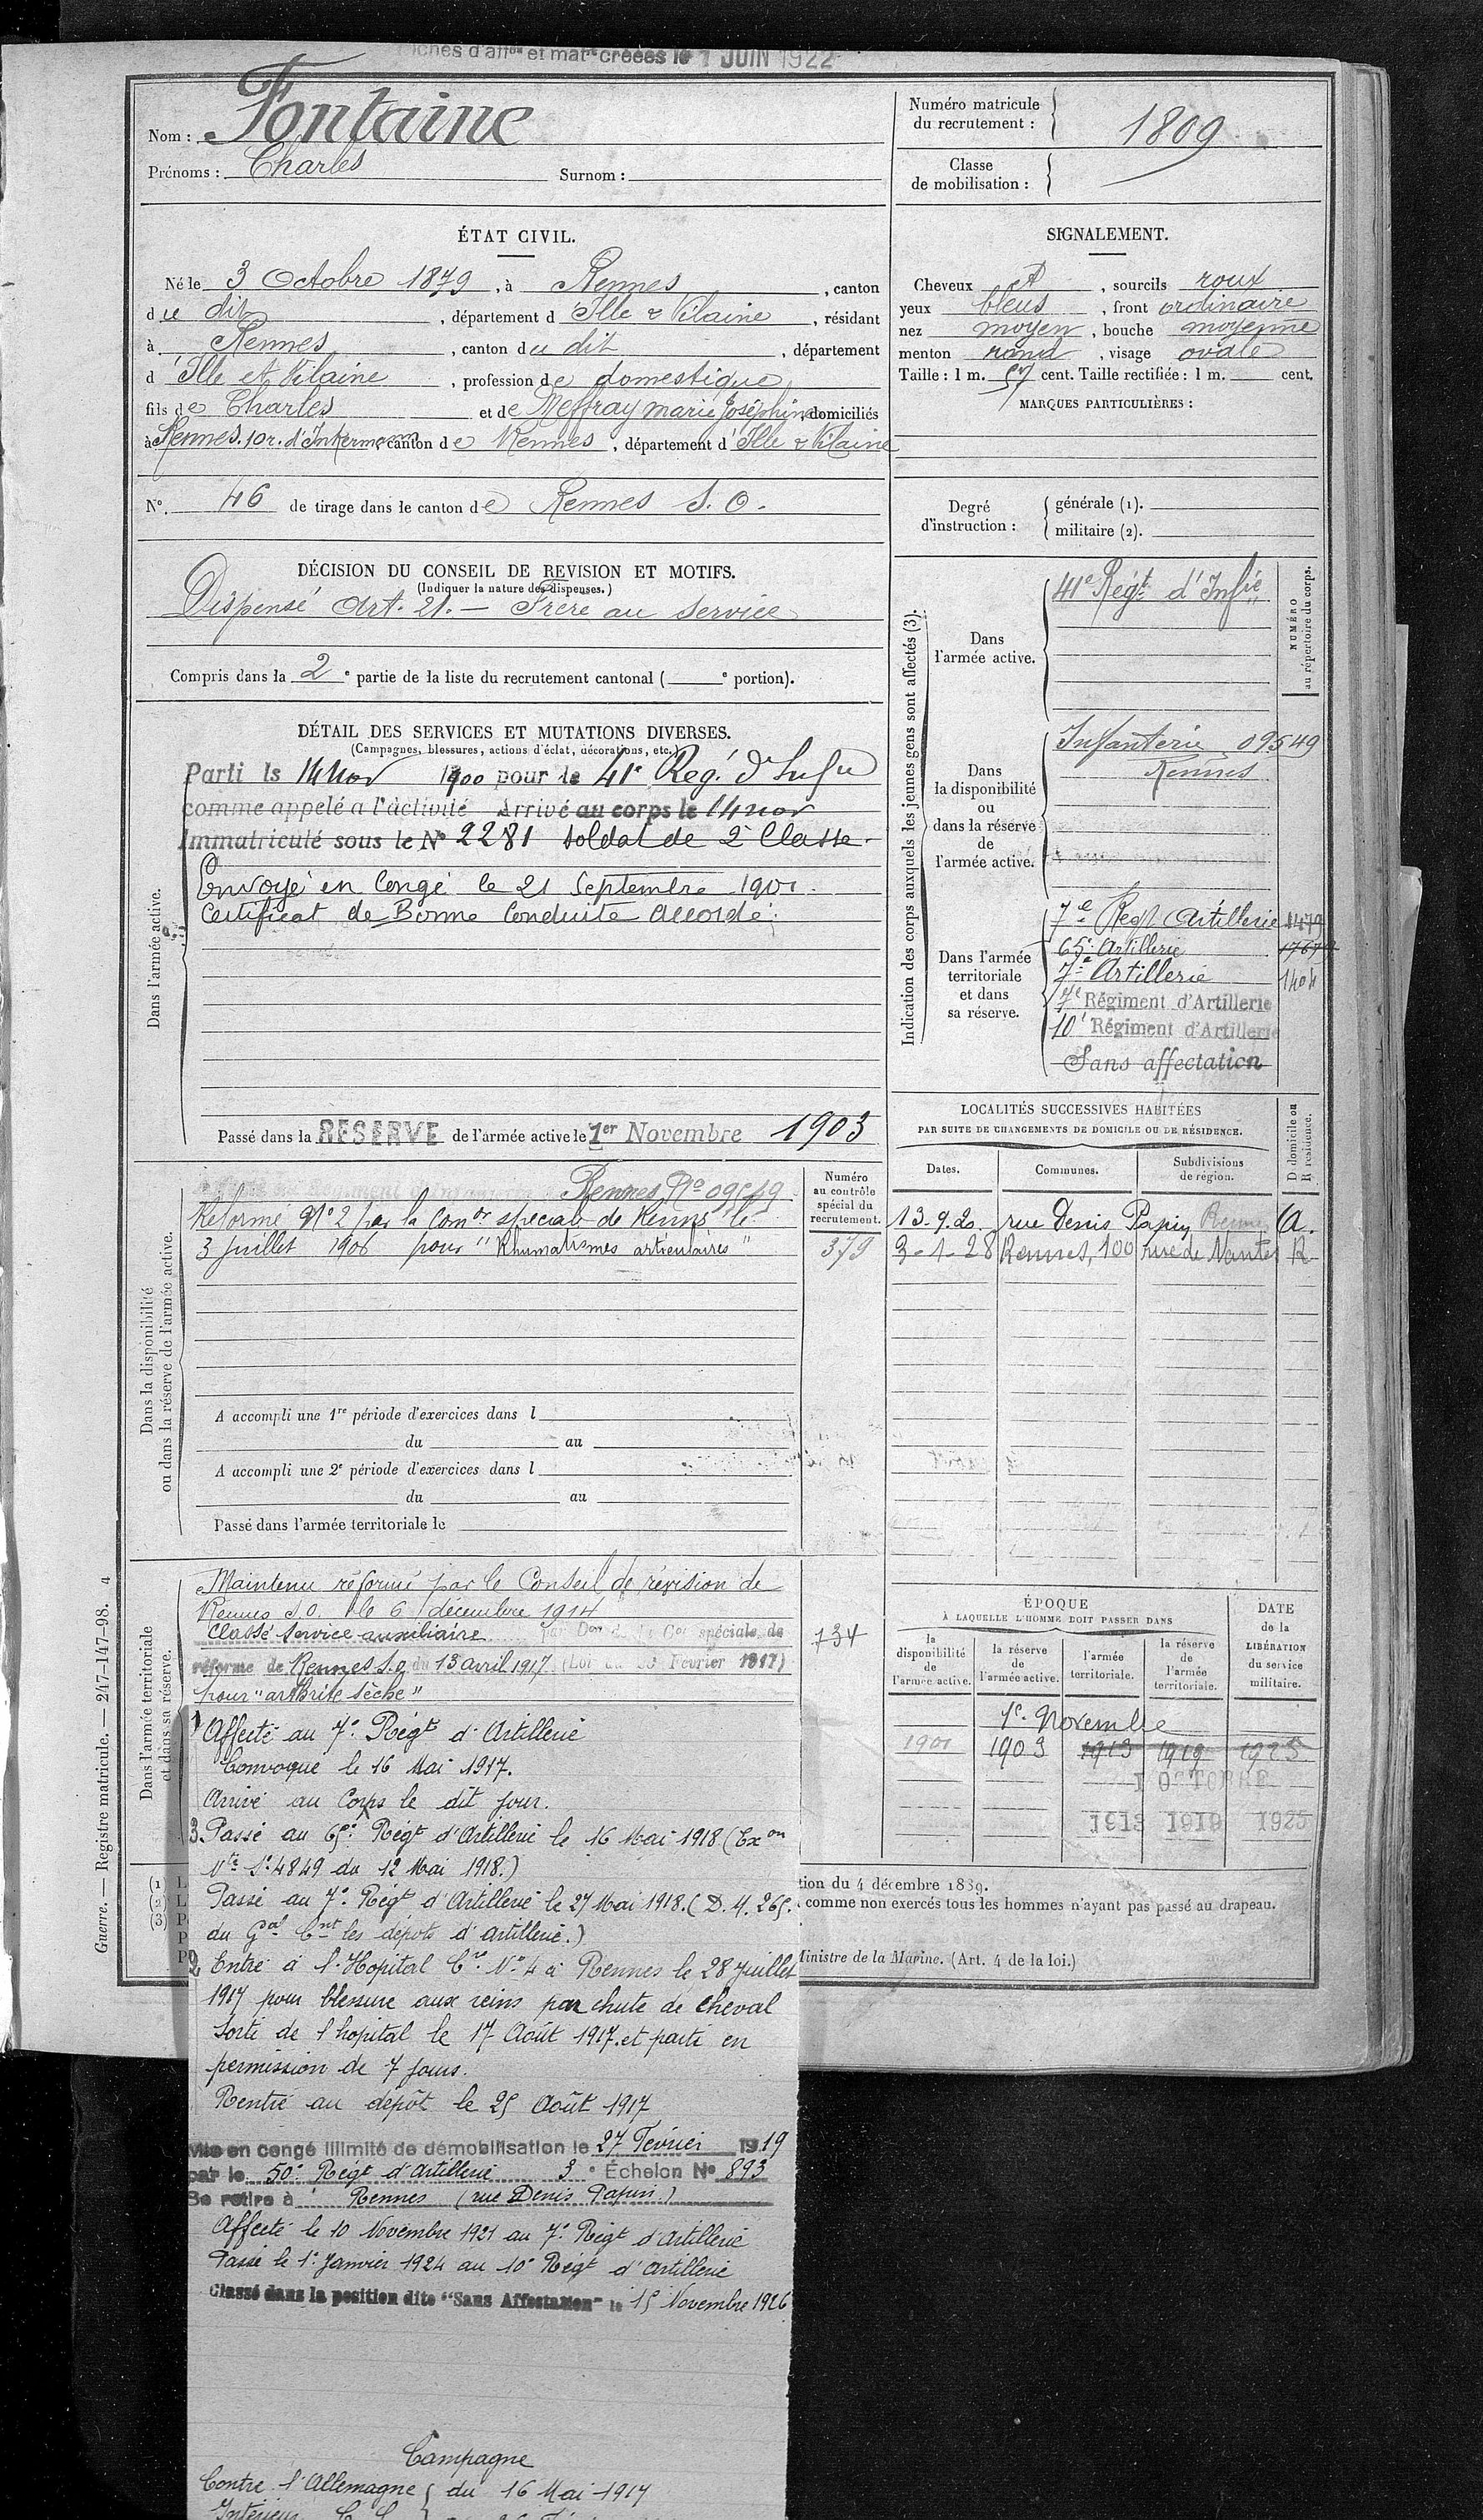 Fiches d'affon et matle créées le 1 JUIN 1922
Nom : Fontaine
Prénoms : Charles Surnom :
Numéro matricule
du recrutement : 1809
Classe
de mobilisation :
ÉTAT CIVIL.
Né le 3 Octobre 1879, à Rennes, canton
du dit, département d'Ille & Vilaine, résidant
à Rennes, canton du dit, département
d'Ille et Vilaine, profession de domestique
fils de Charles et de Meffray marie Joséphine, domiciliés
à Rennes. 10 r. d'Inkermann, canton de Rennes, département d'Ille & Vilaine
N°. 46 de tirage dans le canton de Rennes S. O.
SIGNALEMENT.
Cheveux , sourcils roux
yeux bleus, front ordinaire
nez moyen, bouche moyenne
menton rond, visage ovale
Taille : 1 m. 57 cent. Taille rectifiée : 1 m. cent.
MARQUES PARTICULIÈRES :
Degré
d'instruction :
générale (1).
militaire (2).
DÉCISION DU CONSEIL DE REVISION ET MOTIFS.
(Indiquer la nature des dispenses.)
Dispensé Art. 21. — Frère au service
Compris dans la 2e partie de la liste du recrutement cantonal ( e portion).
DÉTAIL DES SERVICES ET MUTATIONS DIVERSES.
(Campagnes, blessures, actions d'éclat, décorations, etc.)
Dans l'armée active.
Parti le 14 nov 1900 pour le 41e Reg. d'Infie
comme appelé a l'activité Arrivé au corps le 14 nov
Immatriculé sous le N° 2281 soldat de 2e Classe.
Envoyé en Congé le 21 Septembre 1901.
Certificat de Bonne Conduite Accordé.
Passé dans la RESERVE de l'armée active le 1er Novembre 1903
Indication des corps auxquels les jeunes gens sont affectés (3).
NUMÉRO
au répertoire du corps.
Dans
l'armée active.
41e Régt d'Infie
Dans
la disponibilité
ou
dans la réserve
de
l'armée active.
Infanterie 09549
Rennes
Dans l'armée
territoriale
et dans
sa réserve.
7e Regt Artillerie 1479
65e Artillerie
7e Artillerie 1404
7e Régiment d'Artillerie
10e Régiment d'Artillerie
Sans affectation
LOCALITÉS SUCCESSIVES HABITÉES
PAR SUITE DE CHANGEMENTS DE DOMICILE OU DE RÉSIDENCE.
D domicile ou
R résidence.
Dates. Communes. Subdivisions
de région.
13-9-20. rue Denis Papin Rennes
3-1-28 Rennes, 100 rue de Nantes R
Dans la disponibilité
ou dans la réserve de l'armée active.
Rennes No 09549
Numéro
au contrôle
spécial du
recrutement.
379
Réformé N° 2 par la Comon spéciale de Rennes le
3 Juillet 1906 pour "Rhumatismes articulaires"
A accompli une 1re période d'exercices dans l
du au
A accompli une 2e période d'exercices dans l
du au
Passé dans l'armée territoriale le
Dans l'armée territoriale
et dans sa réserve.
734
Maintenu réformé par le Conseil de révision de
Rennes S.O. le 6 décembre 1914
Classé Service auxiliaire par Don de la Con spéciale de
réforme de Rennes S.O. du 13 avril 1917 (Loi du 20 Février 1917)
pour "arthrite sèche"
1 Affecté au 7e Régt d'Artillerie
Convoqué le 16 Mai 1917.
Arrivé au Corps le dit jour.
3. Passé au 65e Régt d'Artillerie le 16 Mai 1918 (Exon
Nte S. 4849 du 12 Mai 1918.)
Passé au 7e Régt d'Artillerie le 27 Mai 1918. (D. M. 265.
du Gal Cnt les dépôts d'artillerie.)
2 Entré à l'Hopital Cre N° 4 à Rennes le 28 Juillet
1917 pour blessure aux reins par chute de cheval
Sorti de l'hopital le 17 Août 1917. et parti en
permission de 7 jours.
Rentré au dépôt le 25 Août 1917
Mis en congé illimité de démobilisation le 27 Février 1919
par le 50e Régt d'Artillerie 3e Échelon N° 893
Se retire à Rennes (rue Denis Papin)
Affecté le 10 Novembre 1921 au 7e Régt d'Artillerie
Passé le 1e Janvier 1924 au 10e Régt d'Artillerie
Classé dans la position dite "Sans Affectation" le 15 Novembre 1926
Campagne
Contre l'Allemagne { du 16 Mai 1917
Intérieur C. S.
ÉPOQUE
À LAQUELLE L'HOMME DOIT PASSER DANS
DATE
de la
LIBÉRATION
du service
militaire.
la
disponibilité
de
l'armée active.
la réserve
de
l'armée active.
l'armée
territoriale.
la réserve
de
l'armée
territoriale.
1er Novembre
1901 1903 1913 1919 1925
1 OCTOBRE
1913 1919 1925
tion du 4 décembre 1889.
comme non exercés tous les hommes n'ayant pas passé au drapeau.
Ministre de la Marine. (Art. 4 de la loi.)
Guerre. — Registre matricule. — 247-147-98. 4